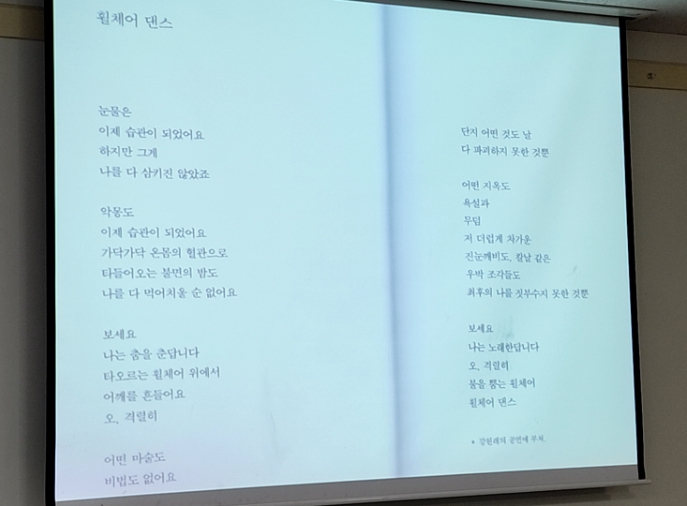 휠체어 댄스
눈물은
이제 습관이 되었어요
하지만 그게
나를 다 삼키진 않았죠
악몽도
이제 습관이 되었어요
가닥가닥 온몸의 혈관으로
타들어오는 불면의 밤도
나를 다 먹어치울 순 없어요
보세요
나는 춤을 춘답니다
타오르는 휠체어 위에서
어깨를 흔들어요
오, 격렬히
어떤 마술도
비법도 없어요
단지 어떤 것도 날
다 파괴하지 못한 것뿐
어떤 지옥도
욕설과
무덤
저 더럽게 차가운
진눈깨비도, 칼날 같은
우박 조각들도
최후의 나를 짓부수지 못한 것뿐
보세요
나는 노래한답니다
오, 격렬히
불을 뿜는 휠체어
휠체어 댄스
* 강원래의 공연에 부쳐.